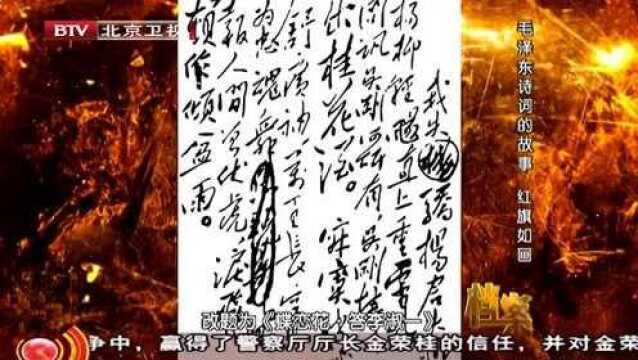 BTV 北京卫视
我失骄杨君失
杨柳轻飏直上重霄
问讯吴刚何所有,吴刚捧
出桂花酒。 寂寞
舒广袖,万里长空
为忠魂舞。
报人间曾伏虎,泪飞
顿作倾盆雨。
毛泽东诗词的故事 红旗如画
档案
改题为《蝶恋花·答李淑一》
争中,赢得了警察厅厅长金荣桂的信任,并对金荣